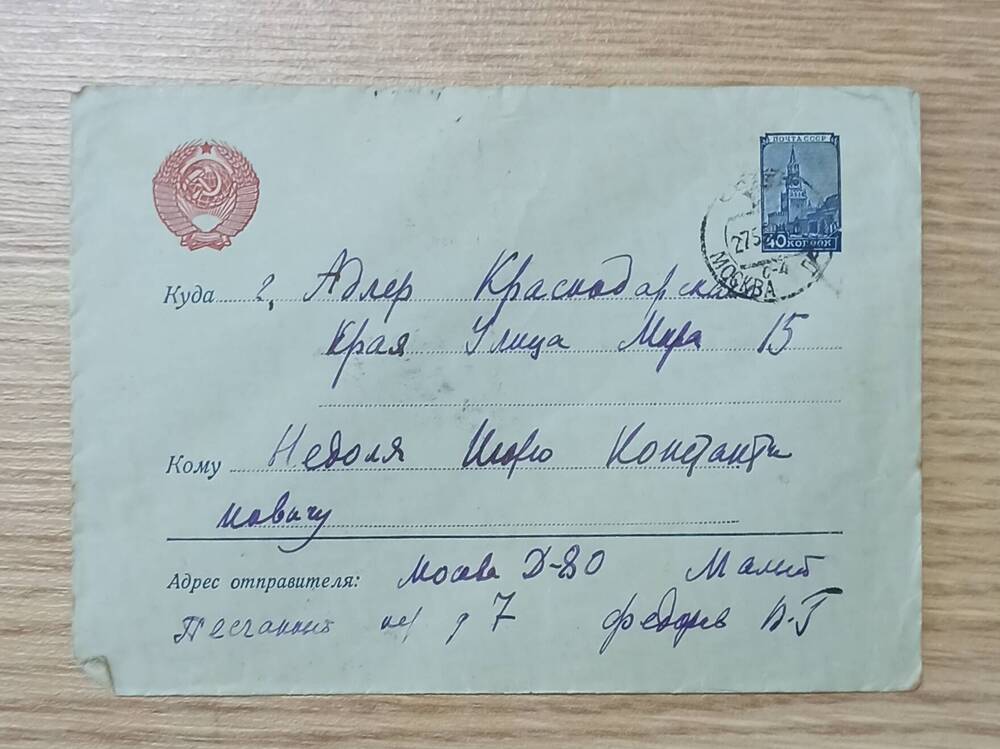 ПОЧТА СССР
40 КОПЕЕК
275
МОСКВА
Куда 2, Адлер Краснодарский
Края Улица Мира 15
Кому Недоля Игорю Константи
новичу
Адрес отправителя: Москва Д-80 Малый
Песчаный пер д 7 Федоров В.Г